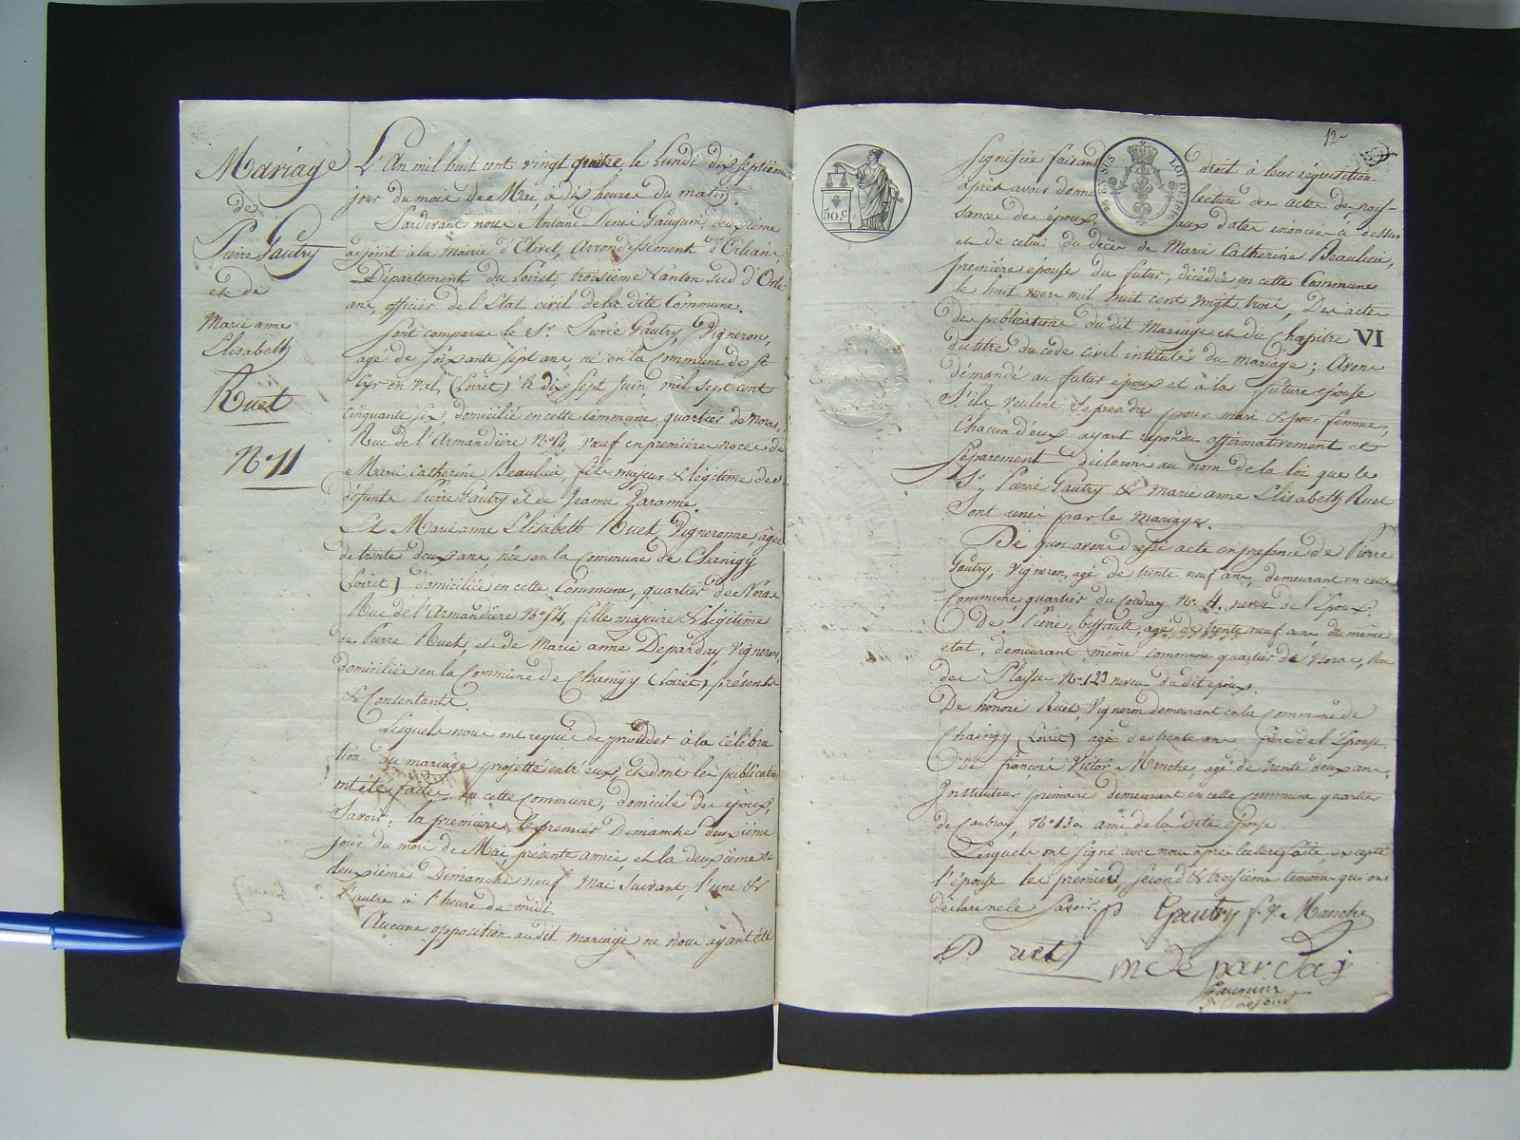 Mariage
de
Pierre Gautry
et de
Marie anne
Elisabeth
Ruet
N.° 11
L'An mil huit cent vingt quatre le lundi dix septième
jour du mois de Mai, à dix heures du matin.
Pardevant nous Antoine Denis Gaugain, deuxième
adjoint à la mairie d'Olivet, Arrondissement d'Orléans,
Département du Loiret, troisième Canton sud d'Orlé-
ans, officier de l'Etat civil de la dite Commune.
Sont comparus le Sr. Pierre Gautry, Vigneron,
agé de soixante sept ans né en la Commune de St
Cyr en Val, (Loiret) le dix sept Juin mil sept cent
cinquante six, domicilié en cette Commune, quartier de Noras,
Rue de l'Armandière N.° 14, veuf en premières noces de
Marie Catherine Beaulieu, fils majeur & légitime des
défunts Pierre Gautry et de Jeanne Garanne.
Et Marie anne Elisabeth Ruet, Vigneronne agée
de trente deux ans, née en la Commune de Chaingy
(Loiret) domiciliée en cette Commune, quartier de Noras
Rue de l'Armandière N.° 14, fille majeure & légitime
de Pierre Ruet, et de Marie anne Deparday, Vignerons,
domiciliés en la Commune de Chaingy (Loiret) présents
& Consentants.
Lesquels nous ont requis de procéder à la célébra
tion du mariage projetté entr'eux, et dont les publications
ont été faites en cette Commune, domicile des époux,
Savoir: la première le premier Dimanche deuxième
jour du mois de Mai, présente année, et la deuxième le
deuxième Dimanche neuf Mai suivant, l'une &
l'autre à l'heure de midi.
Aucune opposition audit mariage ne nous ayant été
12
50 C.
signifiée faisant droit à leur réquisition
après avoir donné lecture des actes de nais-
sance des époux aux dates énoncées ci dessus
et de celui du décès de Marie Catherine Beaulieu,
première épouse du futur, décédée en cette Commune
le huit mars mil huit cent vingt trois, Des actes
de publications dudit mariage et du Chapitre VI
du titre du code civil intitulé du mariage; Avons
demandé au futur époux et à la future épouse
s'ils veulent se prendre pour mari & pour femme,
Chacun d'eux ayant répondu affirmativement et
séparément déclarons au nom de la loi que le
Sr. Pierre Gautry & Marie anne Elisabeth Ruet
sont unis par le mariage.
De quoi avons dressé acte en presence de Pierre
Gautry, Vigneron, agé de trente neuf ans, demeurant en cette
Commune, quartier du Coudray N.° 4, neveu de l'époux.
De Pierre agé de trente neuf ans du même
etat, demeurant même commune quartier de Noras, Rue
de Plaisse N.° 123 neveu dudit époux.
De honoré Ruet, Vigneron demeurant en la commune de
Chaingy (Loiret) agé de trente ans frère de l'épouse
De françois Victor Manche, agé de trente deux ans,
Instituteur primaire demeurant en cette commune quartier
de N.° 130 ami de la dite épouse.
Lesquels ont signé avec nous après lecture faite, excepté
l'épouse les premier, second & troisième témoins qui ont
déclaré ne le savoir. P Gautry f. V. Manche
P ruet
m deparday
Gaugain
adjoint